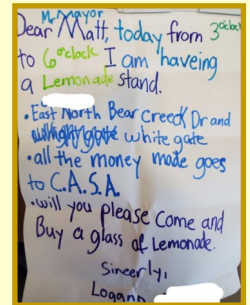 Mr. Mayor
Dear Matt, today from 3o'clock
to 6o'clock I am haveing
a Lemonade stand.
•East North Bear Creeck Dr and
white gate
•all the money made goes
to C.A.S.A.
•will you please Come and
Buy a glass of Lemonade.
Sincerly,
Logann